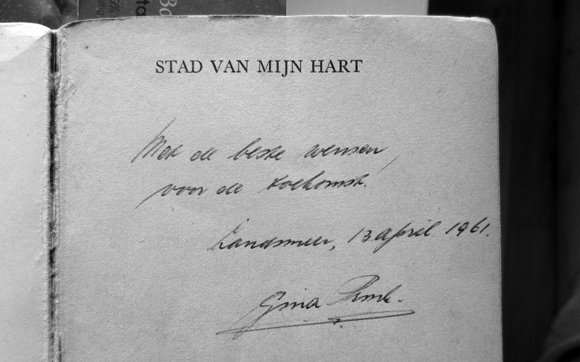 STAD VAN MIJN HART
Met de beste wensen,
voor de toekomst!
Landsmeer, 13 april 1961.
Gina